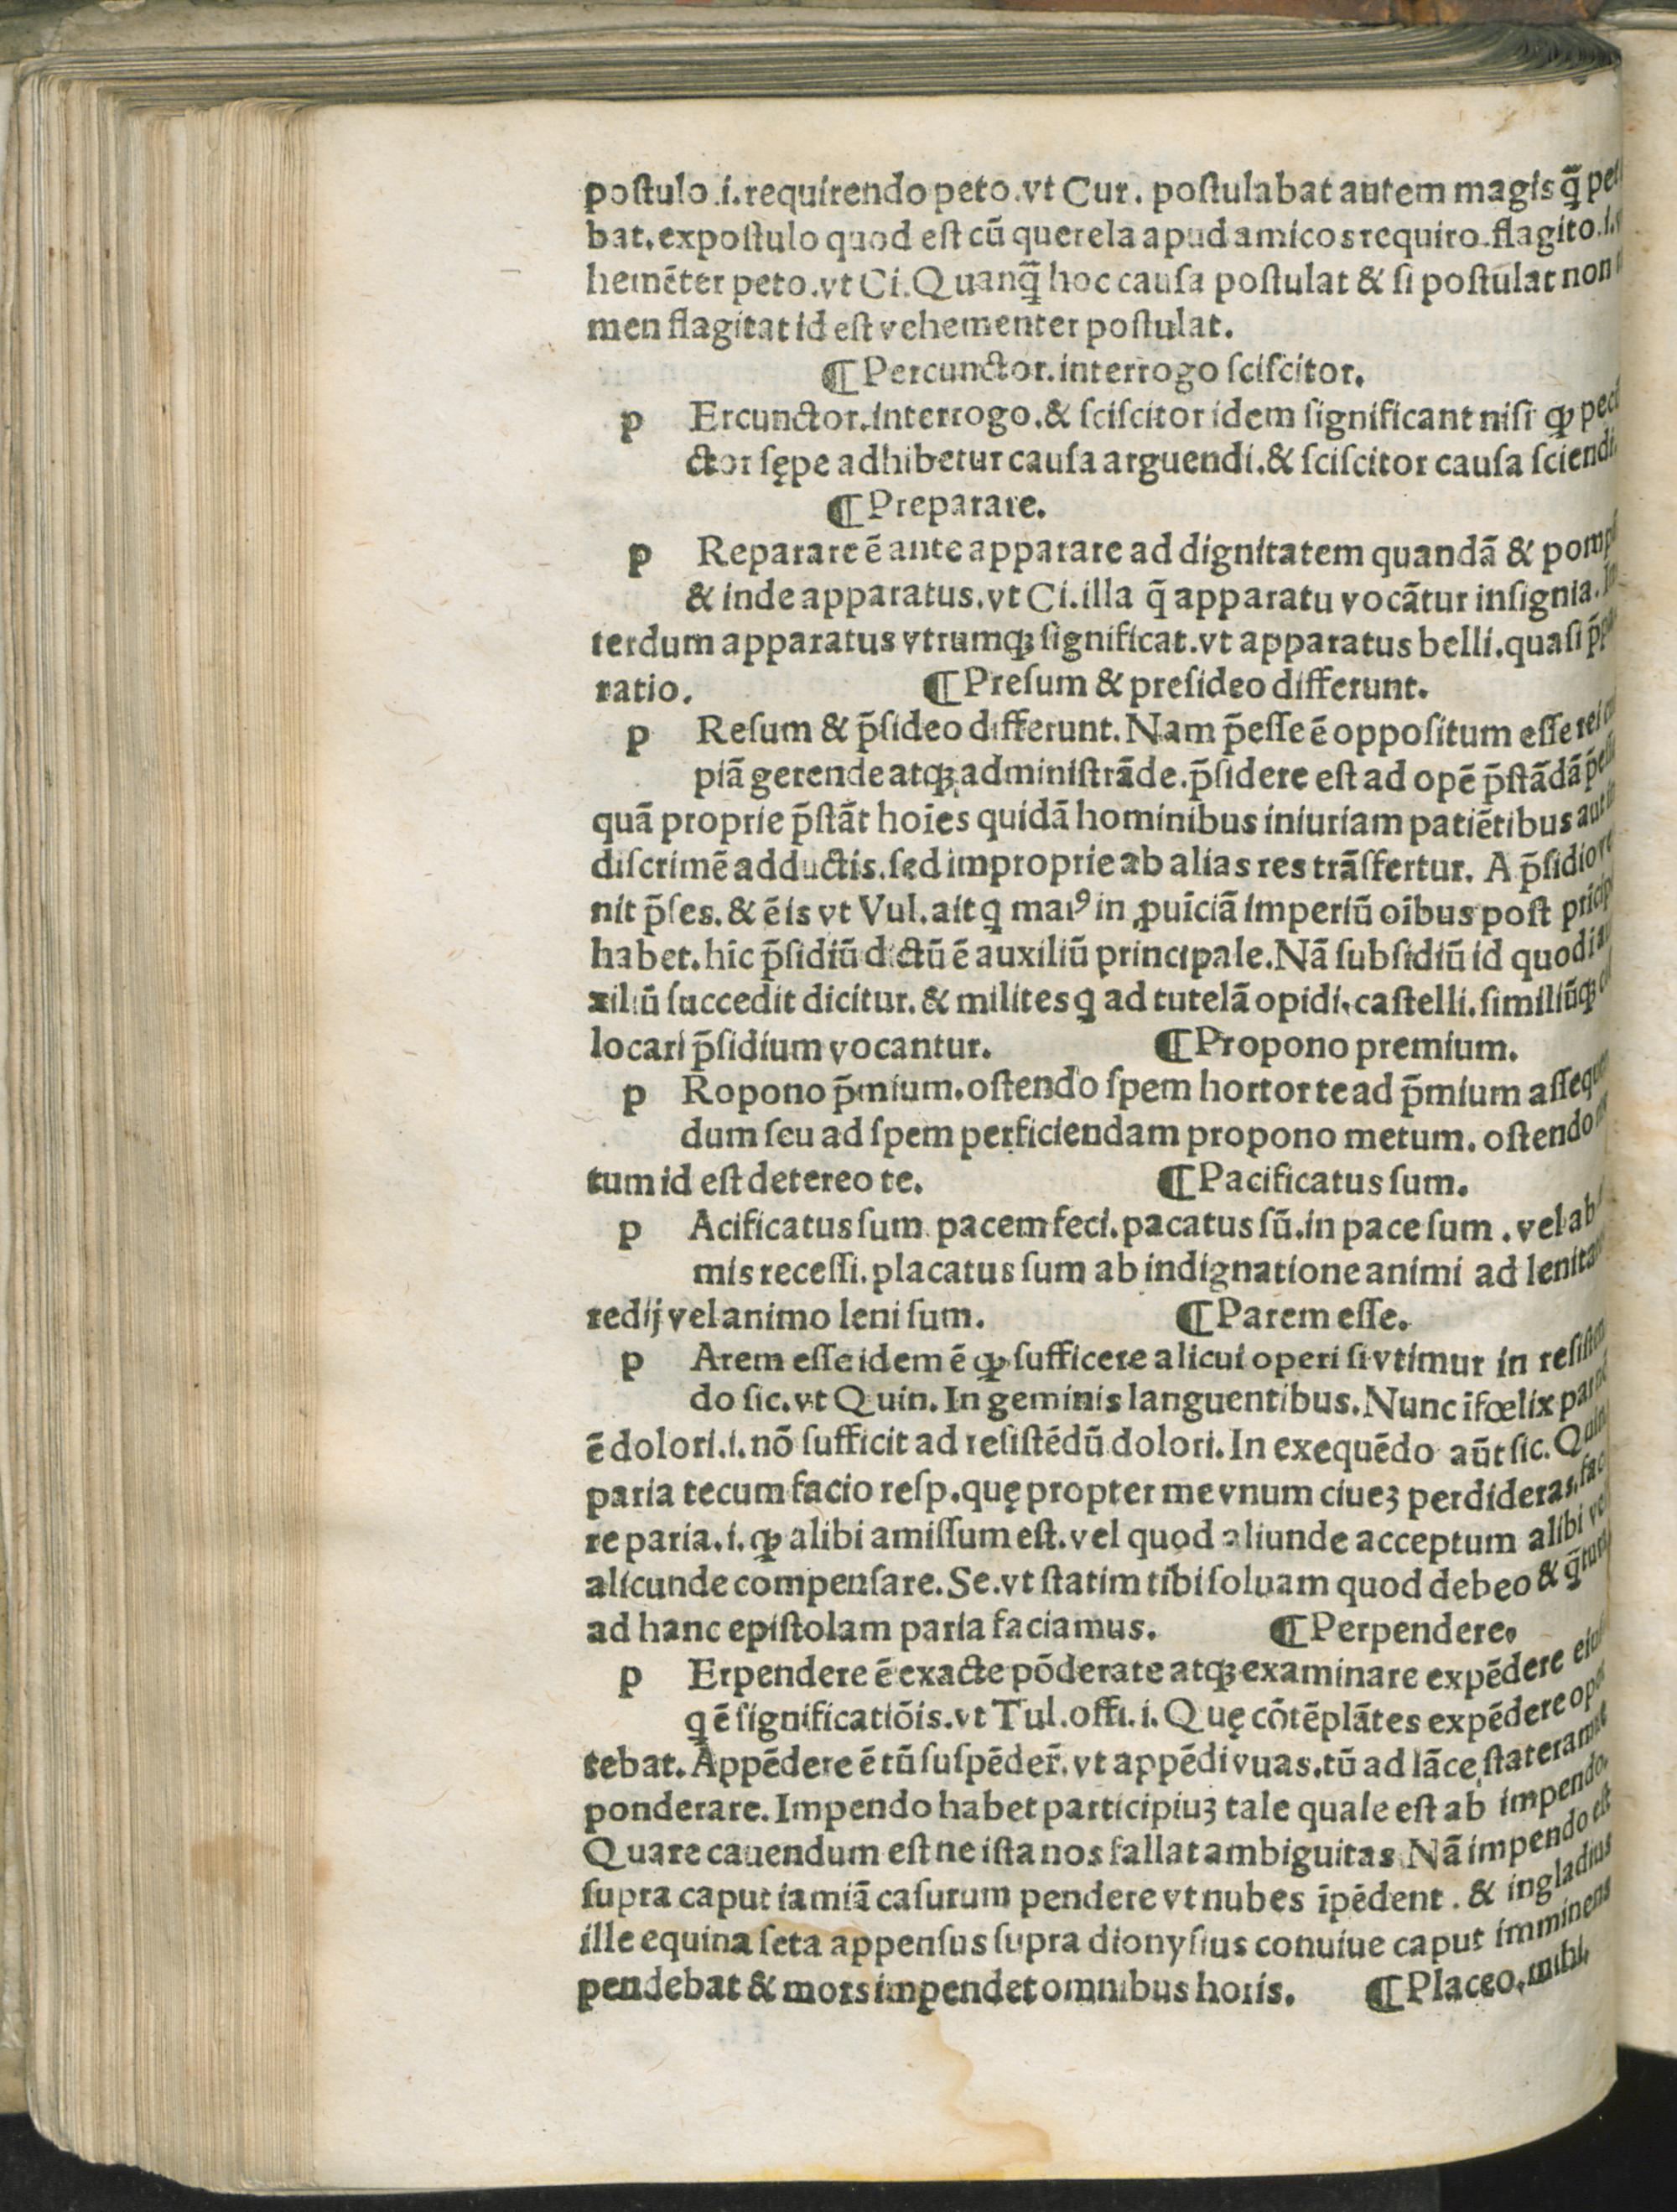 poſtulo .i. requirendo peto . vt Cur . poſtulabat autem magis q̃
bat. expoſtulo quod eſt cũ querela apud amicos requiro. flagito .i.
hemẽter peto . vt Ci. Quanq̃ hoc cauſa poſtulat & ſi poſtulat non
men flagitat id eſt vehementer poſtulat.
¶ Percunctor. interrogo ſciſcitor.
p Ercunctor. interrogo. & ſciſcitor idem ſignificant niſi ꝙ
ctor ſępe adhibetur cauſa arguendi. & ſciſcitor cauſa ſciendi.
¶ Preparare.
p Reparare ẽ ante apparare ad dignitatem quandã &
& inde apparatus. vt Ci. illa q̃ apparatu vocãtur inſignia.
terdum apparatus vtrumqꝫ ſignificat. vt apparatus belli. quaſi
ratio. ¶ Preſum & preſideo differunt.
p Reſum & p̃ſideo differunt. Nam p̃eſſe ẽ oppoſitum eſſe rei
piã gerende atqꝫ adminiſtrãde. p̃ſidere eſt ad opẽ p̃ſtãdã
quã proprie p̃ſtãt hoĩes quidã hominibus iniuriam patiẽtibus aut
diſcrimẽ adductis. ſed improprie ab alias res trãſfertur. A
nit p̃ſes. & ẽ is vt Vul. ait ꝗ maiꝰ in ꝓuĩciã imperiũ oĩbus poſt
habet. hĩc p̃ſidiũ dictũ ẽ auxiliũ principale. Nã ſubſidiũ id quod
xiliũ ſuccedit dicitur. & milites ꝗ ad tutelã opidi. caſtelli. ſimiliũqꝫ
locari p̃ſidium vocantur. ¶ Propono premium.
p Ropono p̃mium. oſtendo ſpem hortor te ad p̃mium
dum ſeu ad ſpem perficiendam propono metum. oſtendo
tum id eſt detereo te. ¶ Pacificatus ſum.
p Acificatus ſum pacem feci. pacatus ſũ. in pace ſum . vel ab
mis receſſi. placatus ſum ab indignatione animi ad
redij vel animo leni ſum. ¶ Parem eſſe.
p Arem eſſe idem ẽ ꝙ ſufficere alicui operi ſi vtimur in
do ſic. vt Quin. In geminis languentibus. Nunc ĩfœlix
ẽ dolori .i. nõ ſufficit ad reſiſtẽdũ dolori. In exequẽdo aũt ſic.
paria tecum facio reſp. quę propter me vnum ciueꝫ perdideras.
re paria .i. ꝙ alibi amiſſum eſt. vel quod aliunde acceptum alibi
alicunde compenſare. Se. vt ſtatim tibi ſoluam quod debeo &
ad hanc epiſtolam paria faciamus. ¶ Perpendere.
p Erpendere ẽ exacte põderate atqꝫ examinare expẽdere
ꝗ ẽ ſignificatiõis. vt Tul. offi. i. Quę cõtẽplãtes expẽdere
tebat. Appẽdere ẽ tũ ſuſpẽder̃. vt appẽdi vuas. tũ ad lãce
ponderare. Impendo habet participiuꝫ tale quale eſt ab impendo.
Quare cauendum eſt ne iſta nos fallat ambiguitas Nã impendo eſt
ſupra caput iamiã caſurum pendere vt nubes ĩpẽdent . & in gladius
ille equina ſeta appenſus ſupra dionyſius conuiue caput imminens
pendebat & mors impendet omnibus horis. ¶ Placeo. mihi.